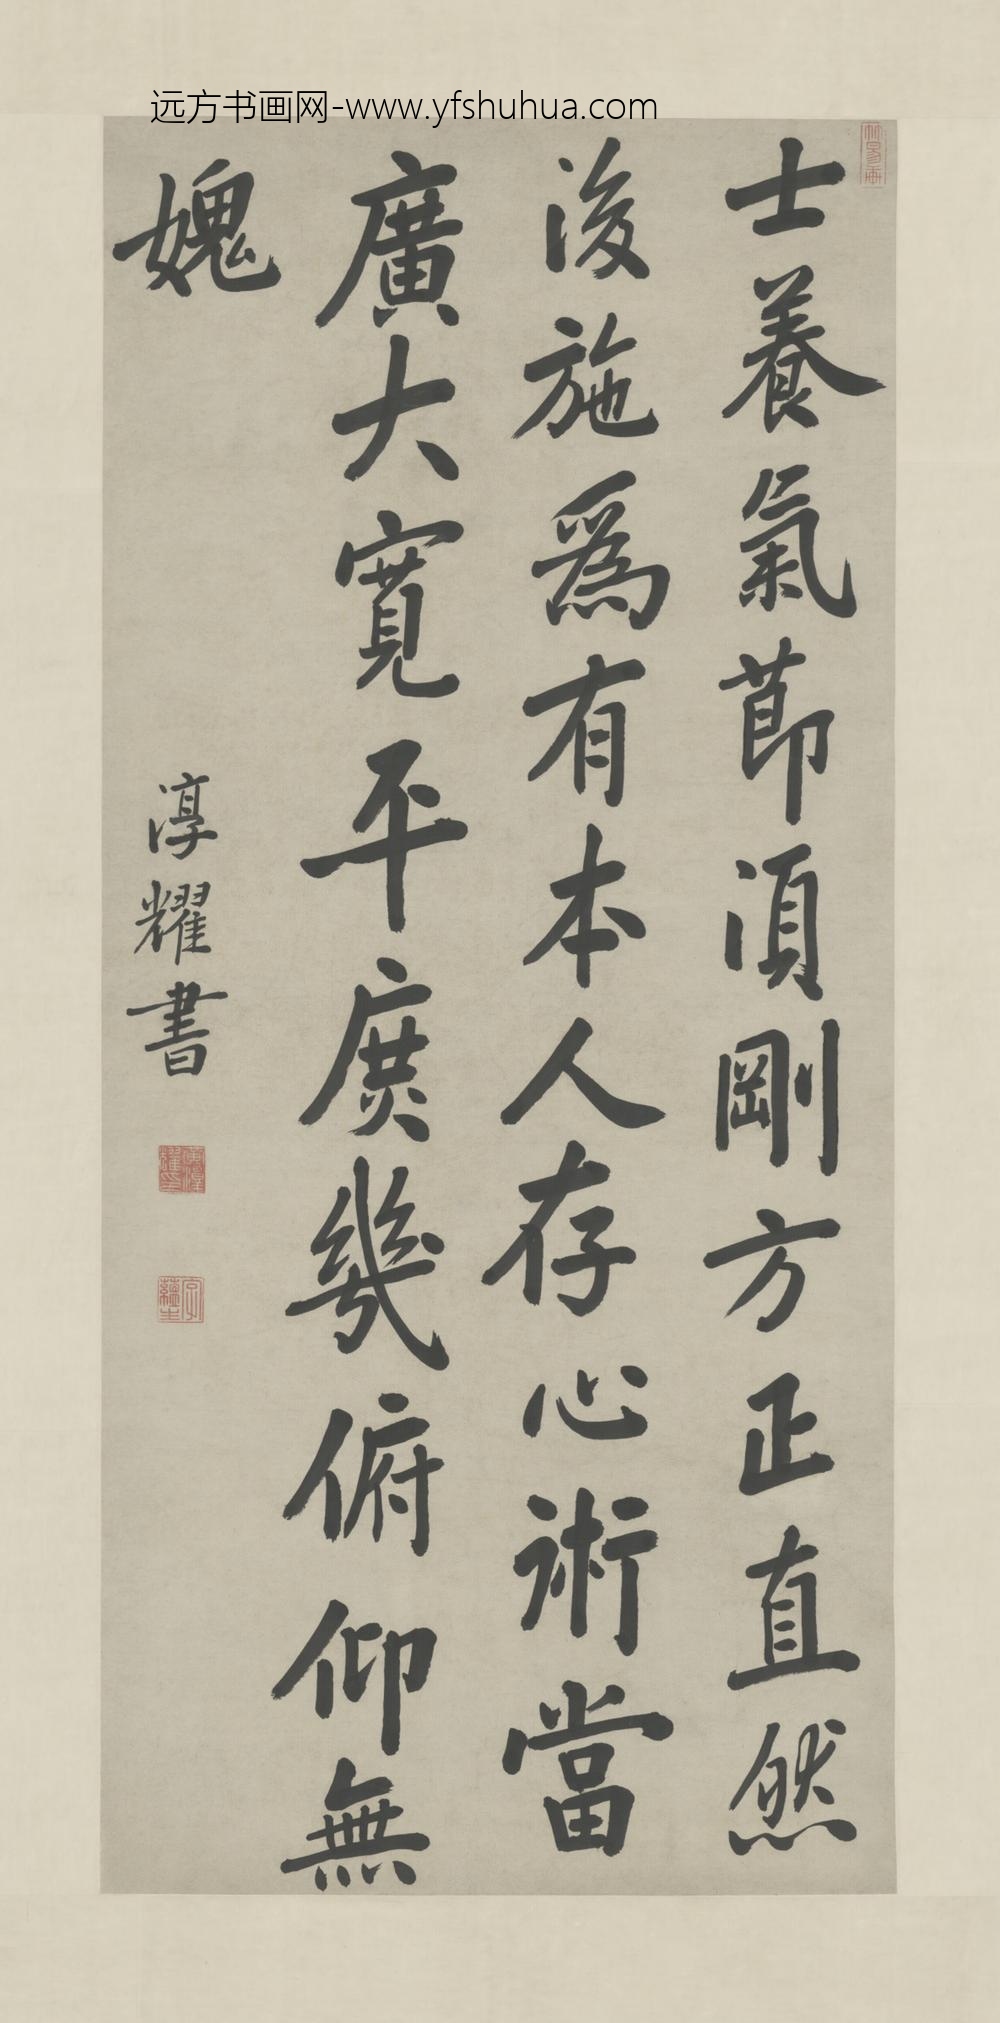 远方书画网-www.yfshuhua.com
士養氣節須剛方正直然
後施爲有本人存心術當
廣大寬平庶幾俯仰無
媿
淳耀書
黃淳耀印